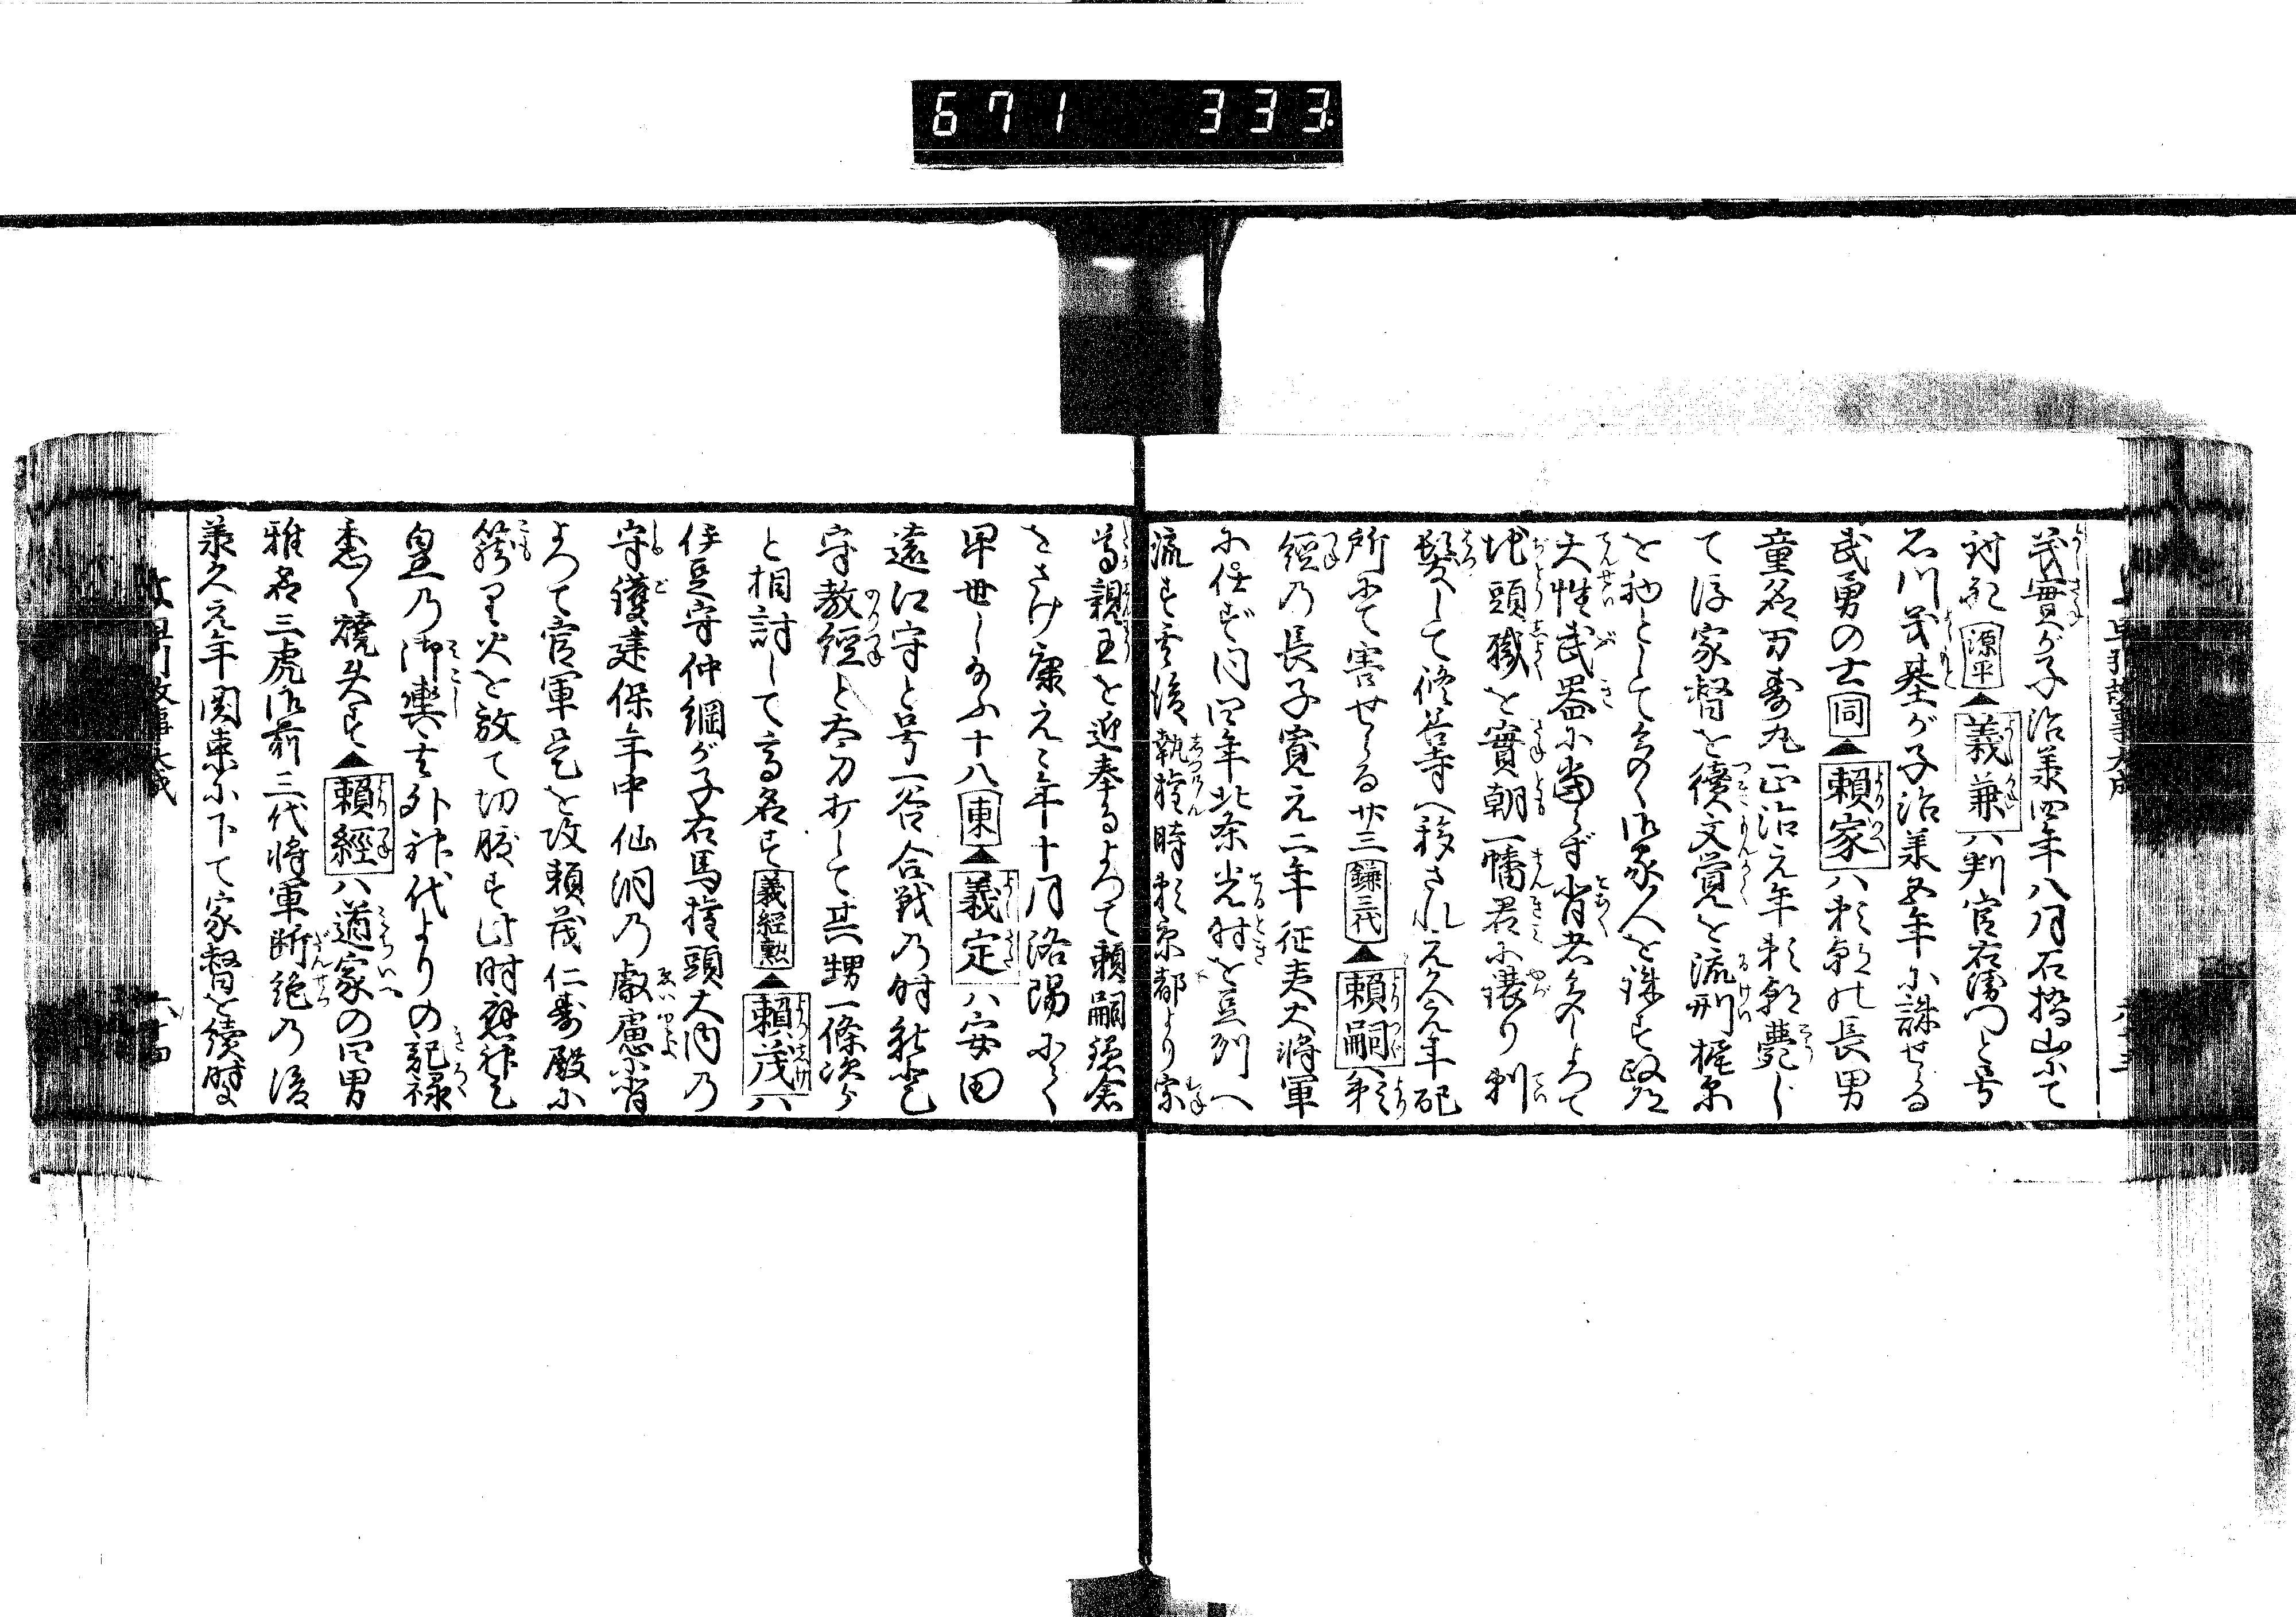 671 333
義實が子治承四年八月石橋山にて
討死源平▲義兼ハ判官右衛門と号
石川義基が子治承五年に誅せらる
武勇の士同▲頼家ハ頼朝の長男
童名万壽丸正治元年頼朝薨じ
て後家督を續文覚を流刑梶原
を初として多く御家人を誅す
天性武器に當らず背者多しよつて
地頭職を實朝一幡君に譲り剃
髪して修善寺へ移され元久元年
所にて害せらる廿三鎌三代▲頼嗣ハ頼
經の長子寛元二年征夷大将軍
に任ず同四年北条光時を豆州へ
流す其後執権時頼京都より宗
尊親王を迎奉るよつて頼嗣鎌倉
をさけ康元元年十月洛陽にて
早世し給ふ十八東▲義定ハ安田
遠江守と号一谷合戦の時能登
守教經と太刀打して其甥一條次郎
と相討して高名す義經勲▲頼茂ハ
伊豆守仲綱が子右馬権頭大内の
守護建保年中仙洞の叡慮に背
よつて官軍是を攻頼茂仁壽殿に
籠り火を放て切腹す此時應神天
皇の御輿其外神代よりの記録
悉く焼失す▲頼經ハ道家の四男
雅名三虎御前三代将軍断絶の後
承久元年関東に下て家督を續時